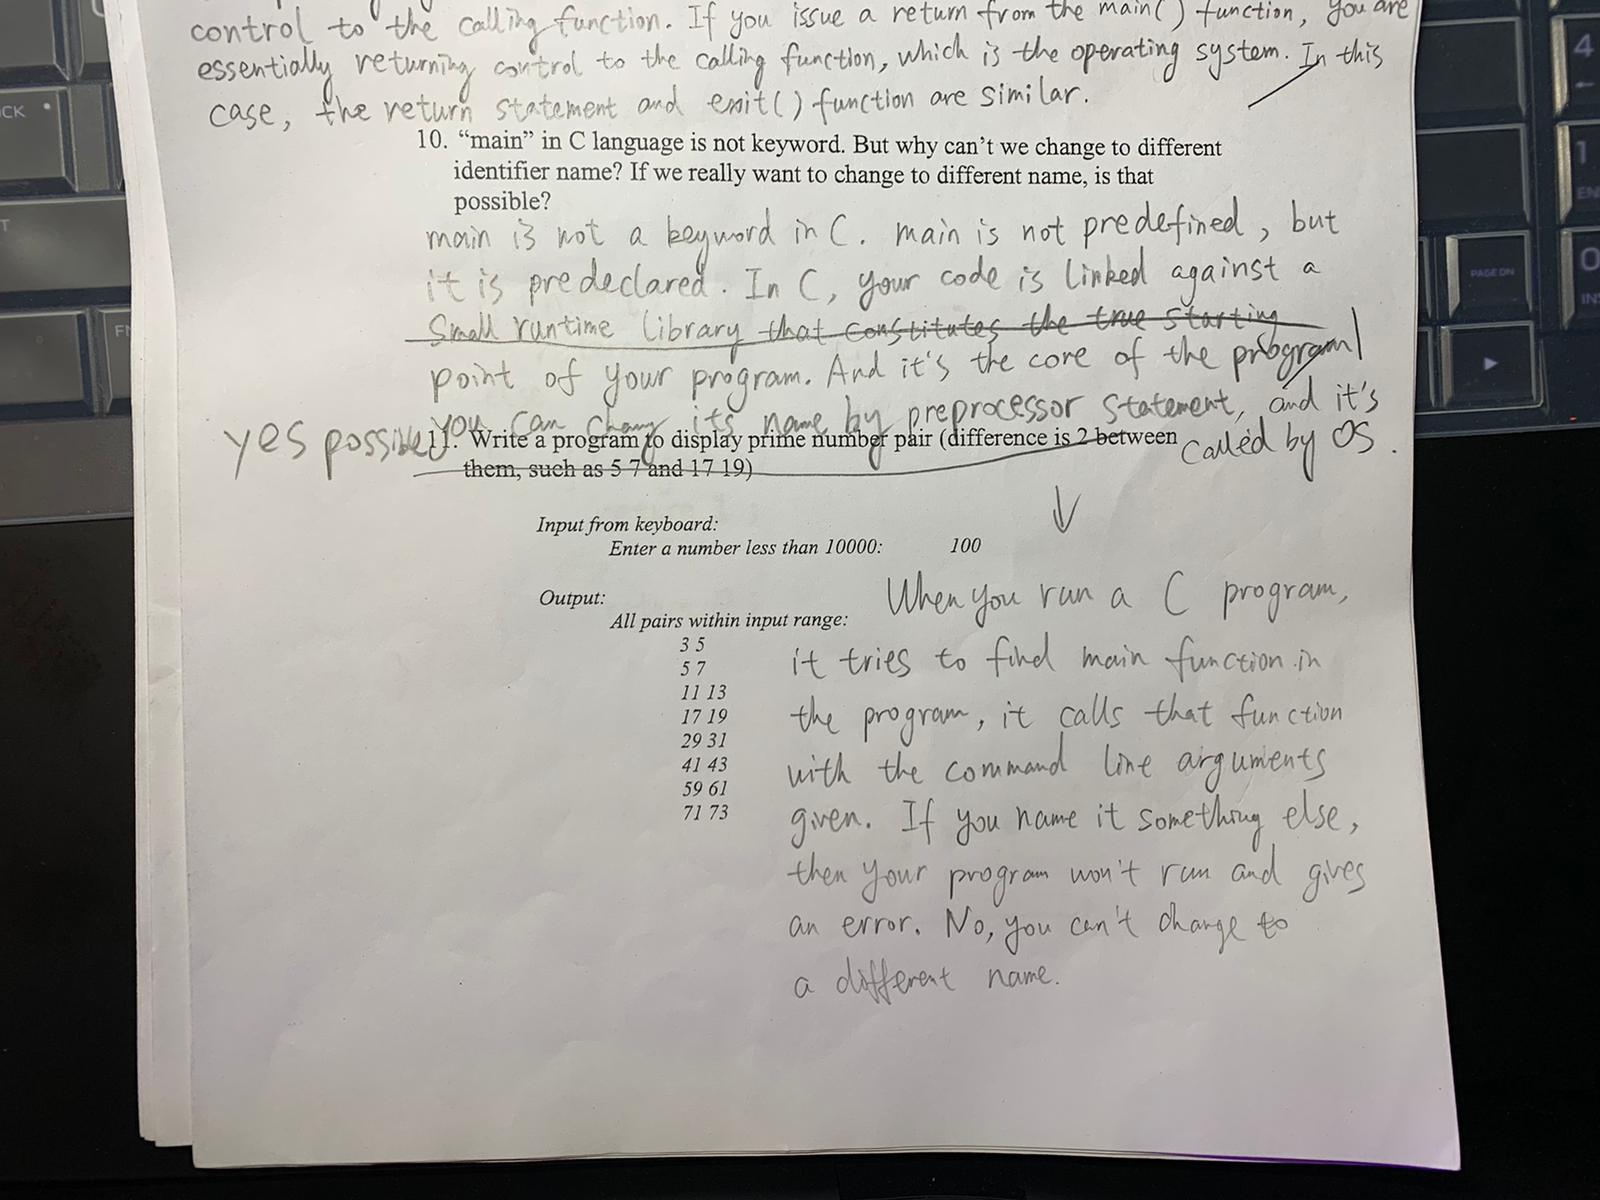 control to the calling function. If you issue a return from the main() function, you are
essentially returning control to the calling function, which is the operating system. In this
case, the return statement and exit() function are similar.
10. “main” in C language is not keyword. But why can’t we change to different
identifier name? If we really want to change to different name, is that
possible?
main is not a keyword in C. main is not predefined, but
it is predeclared. In C, your code is linked against a
small runtime library that constitutes the true starting
point of your program. And it's the core of the program
you can chang its name by preprocessor statement, and it's
called by OS.
yes possible
11. Write a program to display prime number pair (difference is 2 between
them, such as 5 7 and 17 19)
Input from keyboard:
Enter a number less than 10000: 100
Output:
All pairs within input range:
3 5
5 7
11 13
17 19
29 31
41 43
59 61
71 73
When you run a C program,
it tries to find main function in
the program, it calls that function
with the command line arguments
given. If you name it something else,
then your program won't run and gives
an error. No, you can't change to
a different name.
CK
T
FN
PAGE DN
4
←
1
EN
0
IN